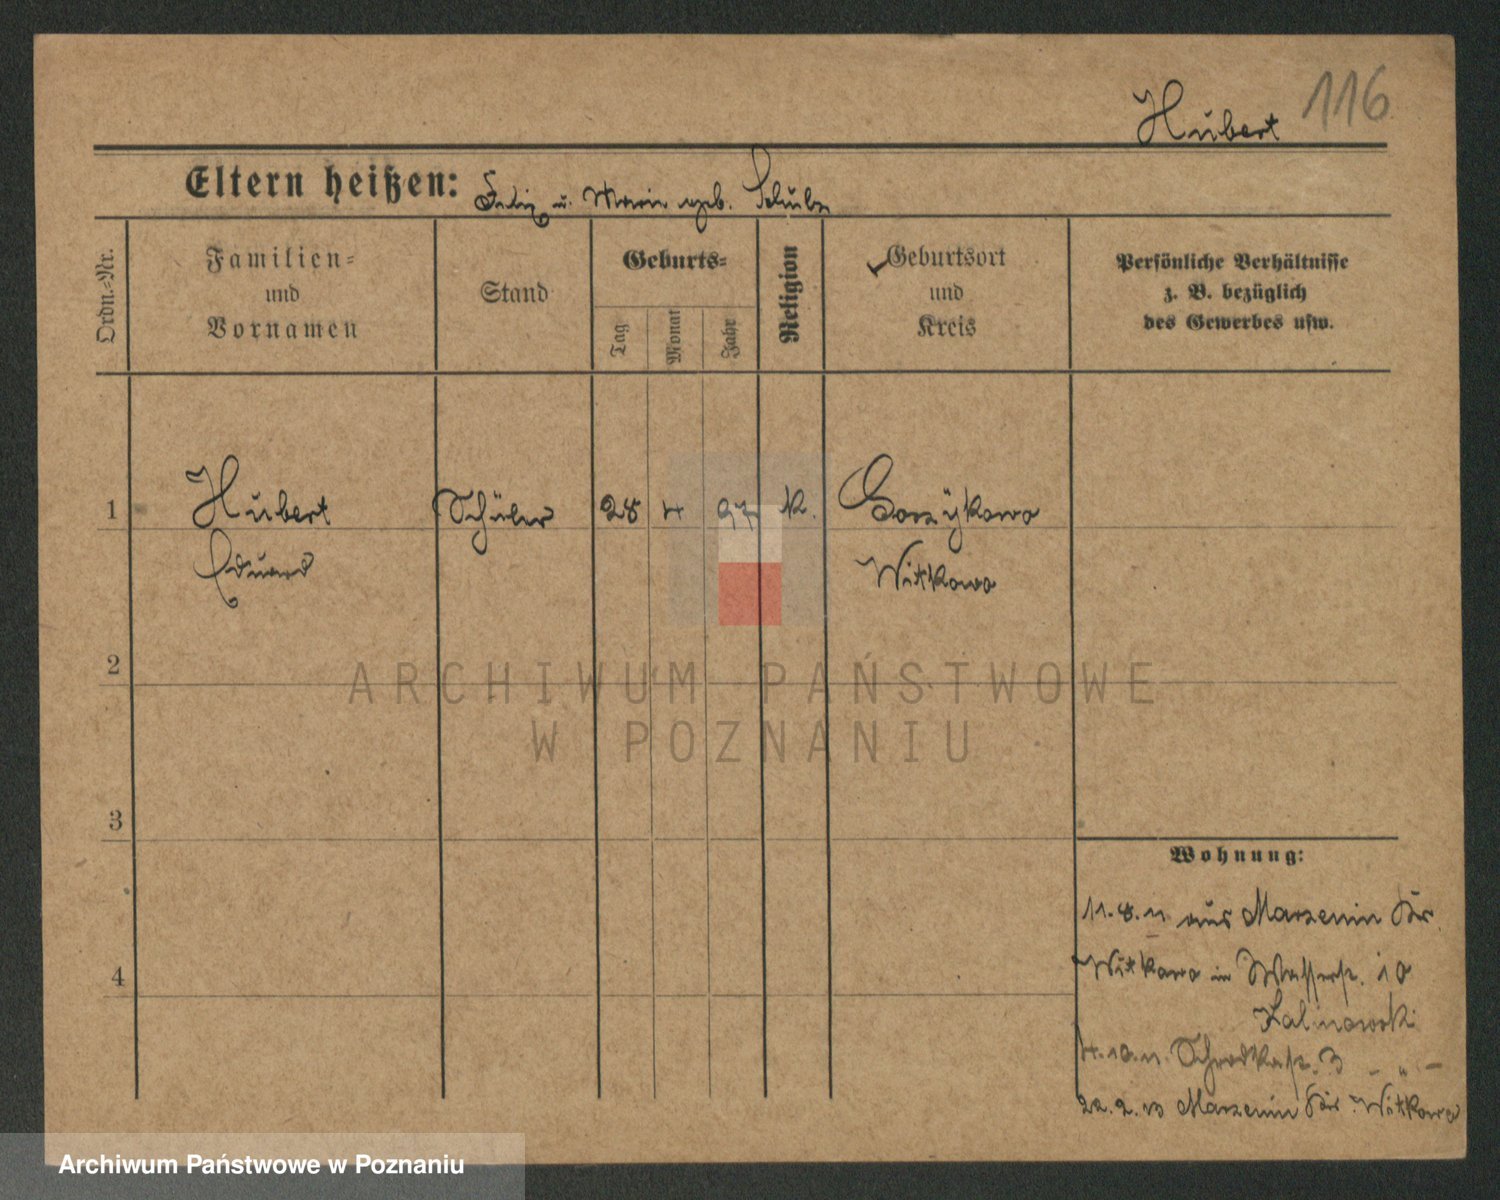 116
Hubert
Eltern heißen: u. Marie geb. Schulz
Ordn.-Nr.
Familien-
und
Vornamen
Stand
Geburts-
Tag
Monat
Jahr
Religion
Geburtsort
und
Kreis
Persönliche Verhältnisse
z. B. bezüglich
des Gewerbes usw.
1 Hubert Schüler 28 4 97 k. Gorzykowo
Eduard Witkowo
2
3
4
Wohnung:
11.8.11 aus Marzenin Kr.
Witkowo in Wasserstr. 10
Kalinowski
4.10.11. Schrodkastr. 3 - " -
22.2.13 Marzenin Kr. Witkowo
ARCHIWUM PAŃSTWOWE
W POZNANIU
Archiwum Państwowe w Poznaniu